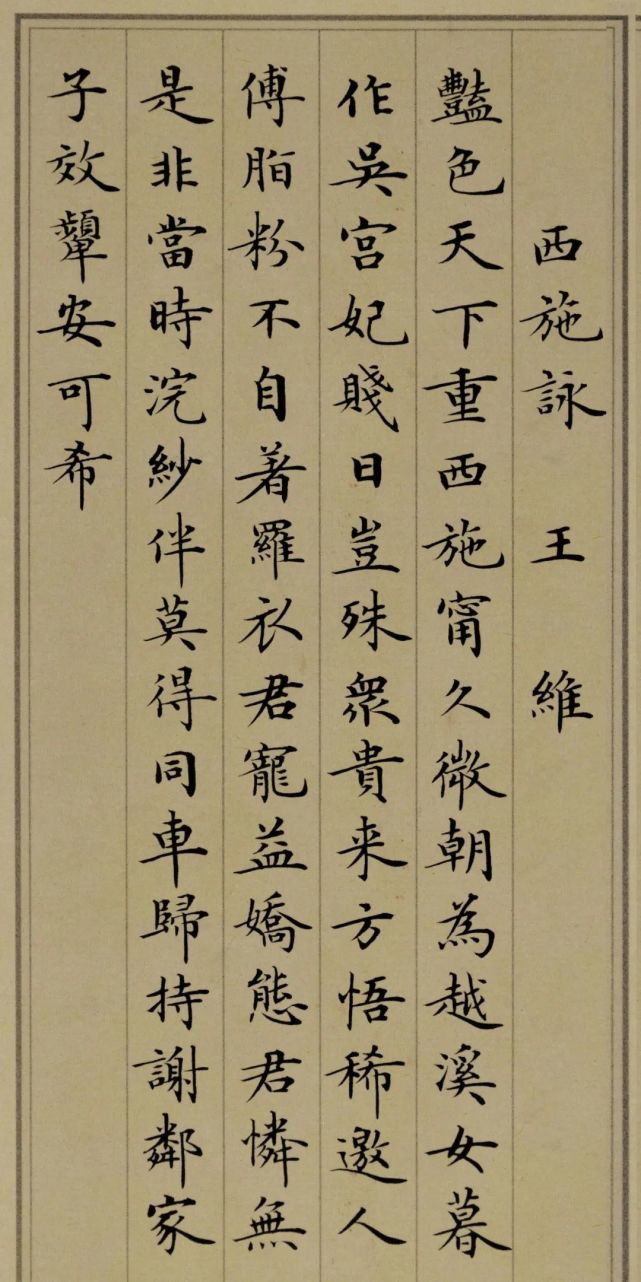 西施詠 王 維
豔色天下重西施甯久微朝為越溪女暮
作吳宮妃賤日豈殊眾貴来方悟稀邀人
傅脂粉不自著羅衣君寵益嬌態君憐無
是非當時浣紗伴莫得同車歸持謝鄰家
子效顰安可希